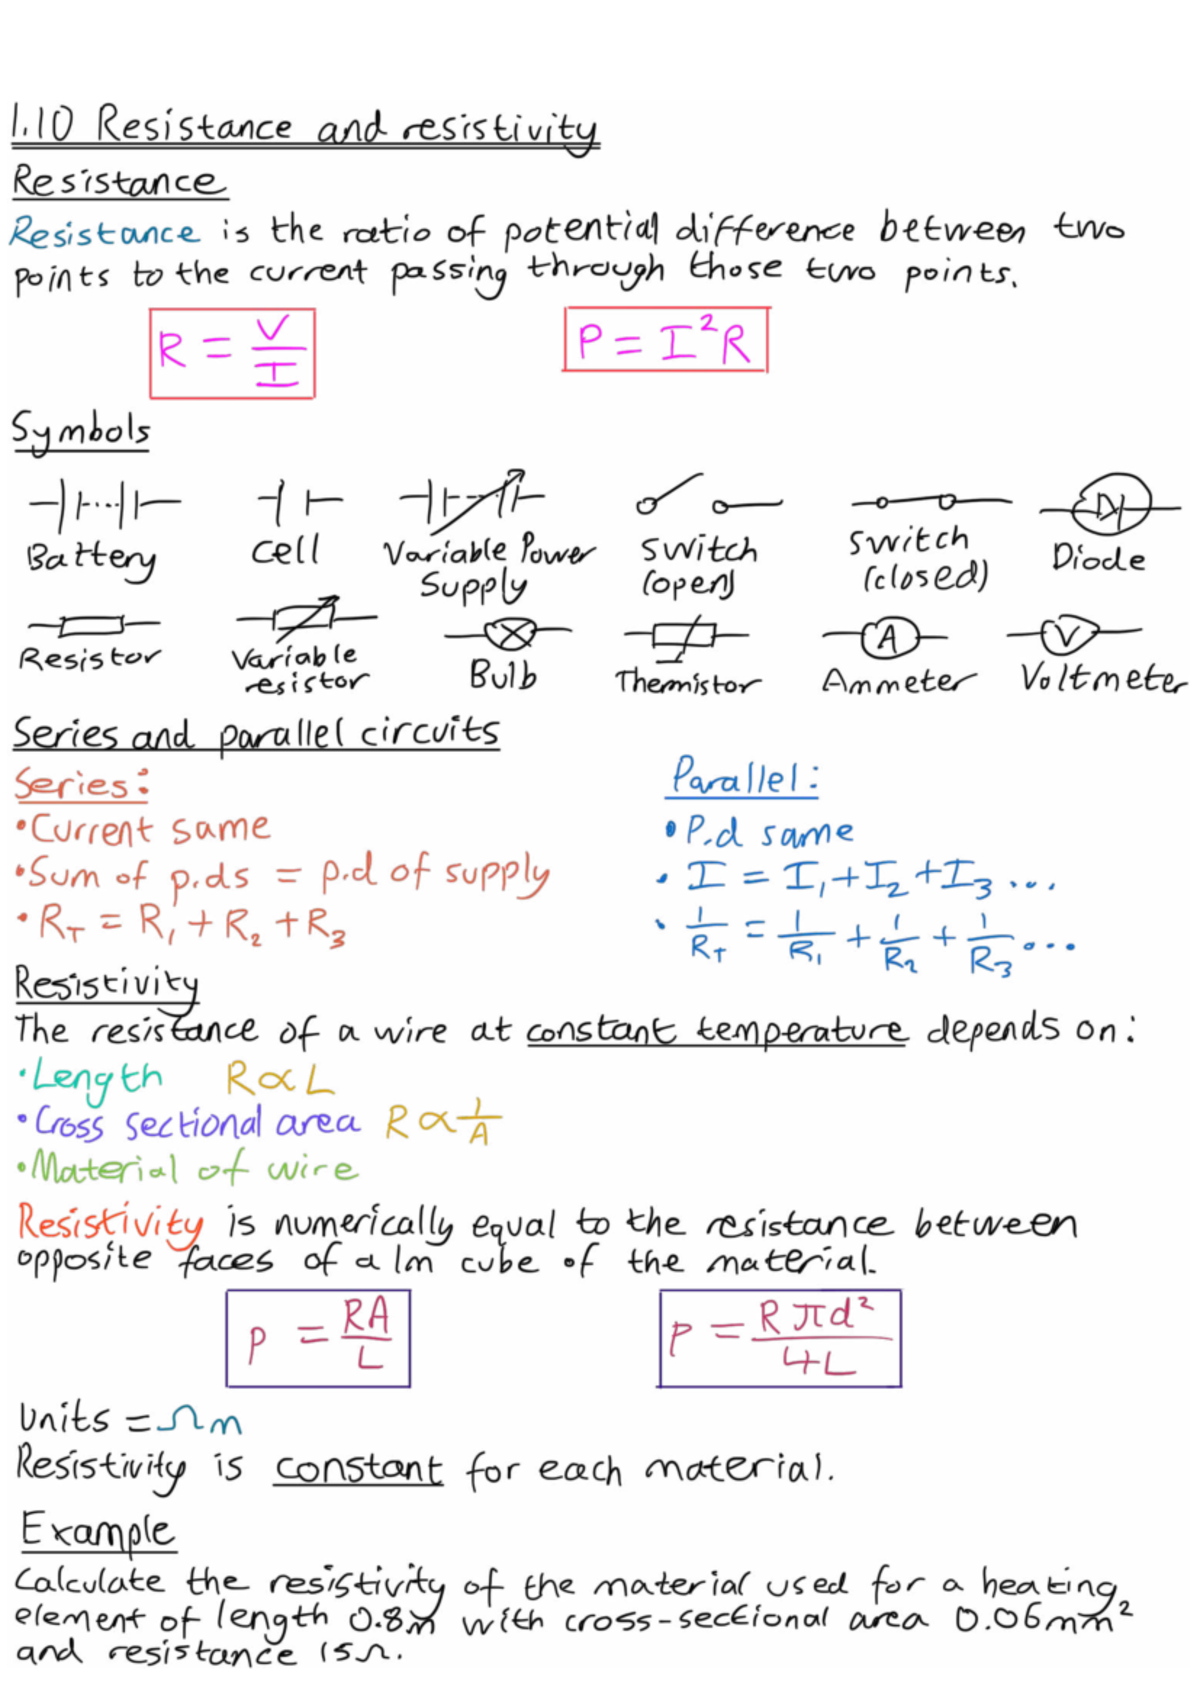 1.10 Resistance and resistivity
Resistance
Resistance is the ratio of potential difference between two
points to the current passing through those two points.
R = V/I
P = I²R
Symbols
Battery
Cell
Variable Power
Supply
Switch
(open)
Switch
(closed)
Diode
Resistor
Variable
resistor
Bulb
Thermistor
A
Ammeter
V
Voltmeter
Series and parallel circuits
Series:
•Current same
•Sum of p.ds = p.d of supply
•R_T = R₁ + R₂ + R₃
Parallel:
•P.d same
• I = I₁ + I₂ + I₃ ...
• 1/R_T = 1/R₁ + 1/R₂ + 1/R₃ ...
Resistivity
The resistance of a wire at constant temperature depends on:
•Length R ∝ L
•Cross sectional area R ∝ 1/A
•Material of wire
Resistivity is numerically equal to the resistance between
opposite faces of a 1m cube of the material.
ρ = RA/L
ρ = Rπd²/4L
Units = Ωm
Resistivity is constant for each material.
Example
Calculate the resistivity of the material used for a heating
element of length 0.8m with cross-sectional area 0.06mm²
and resistance 15Ω.